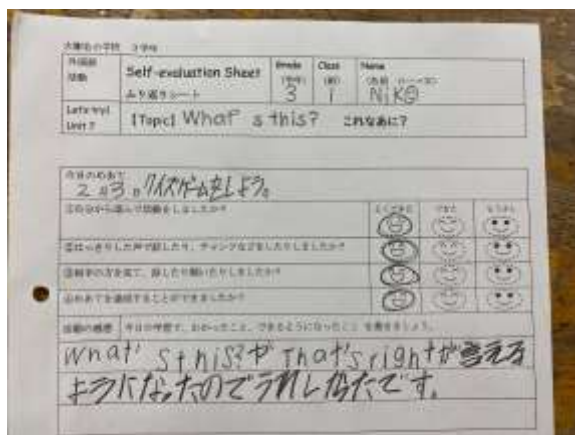 外国語 Self-evaluation Sheet Grade Class Name
活動 ふり返りシート 3 1 NiKO
Let's try!
Unit 7 【Topic】 What's this? これなあに?
今日のめあて
2 3 クイズゲームをしよう。
①自分から進んで活動をしましたか? よくできた できた もう少し
②はっきりした声で話したり、チャンツなどをしたりしましたか?
③相手の方を見て、話したり聞いたりしましたか?
④めあてを達成することができましたか?
活動の感想 今日の学習で、わかったこと、できるようになったことを書きましょう。
What's this?や That's rightが言える
ようになったのでうれしかたです。